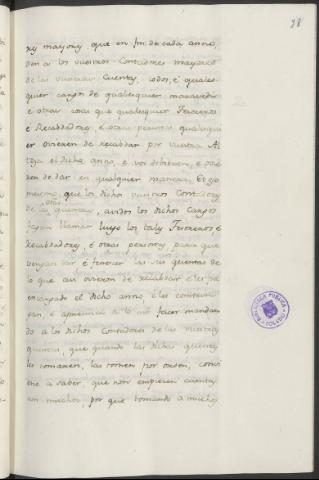 98
ny mayory, que en fin de cada anno,
den a los vuestros Contadores mayores
de las vuestras Cuentas, todos, é quales
quier cargos de qualesquier maravedis
é otras cosas que qualesquier Tesoreros
é Recabdadores, é otras personas qualesqui
er ovieren de recabdar por vuestra Al
teza el dicho anno, é vos dibieren, é ovie
ren de dar en qualquier manera. Et eso
mesmo, que los dichos vuestros Contadores
de las vuestras quentas, avidos los dichos Cargos
fagan llamar luego los tales Tesoreros é
Recabdadores, é otras personas, para que
vengan dar é fenecer las quentas de
lo que asi ovieren de recabdar é les fue
encargado el dicho anno, é les constrin
gan, é apremien a lo asi facer mandan
do a los dichos Contadores de las vuestras
quentas, que quando las dichas quentas
les tomaren, las tomen por orden, convi
ene a saber, que non empiecen cuentas
con muchos, por que tomando a muchos
BIBLIOTECA PUBLICA
TOLEDO